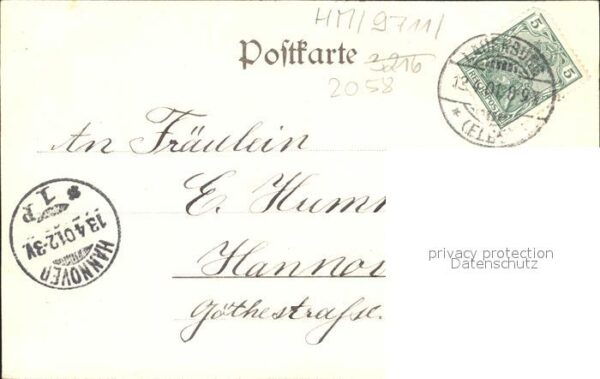 HM/9711/
Postkarte 3216
2058
5
5
LAUENBURG
(ELBE)
An Fräulein
E. Humm
Hannov
Göthestraße.
HANNOVER
13.4.01.2-3V.
* 1 P
privacy protection
Datenschutz